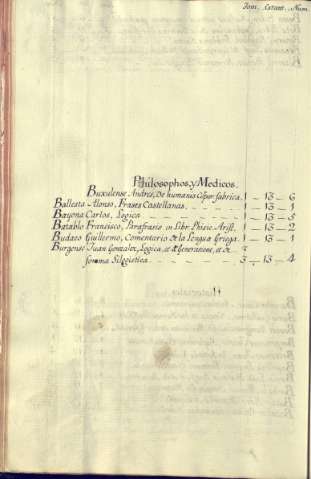 Tom. Estant. Num.
Philosophos, y Medicos.
Buxulense Andres, De humanis Corpor. fabrica. 1 - 13 - 6
Ballesta Alonso, Frases Castellanas. 1 - 13 - 1
Bayona Carlos, Logica 1 - 13 - 5
Batablo Francisco, Parafrasis in Libr. Phisic. Arist. 1 - 13 - 2
Budaeo Guillermo, Comentario de la Lengua Griega. 1 - 13 - 1
Burgense Juan Gonzalez, Logica, et de Generatione, et de
forma Silogistica 3 - 13 - 4